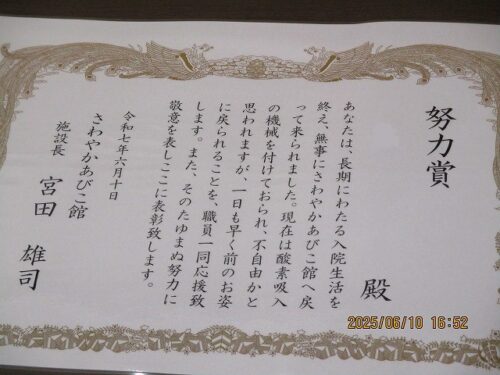 努力賞
殿
あなたは、長期にわたる入院生活を
終え、無事にさわやかあびこ館へ戻
って来られました。現在は酸素吸入
の機械を付けておられ、不自由かと
思われますが、一日も早く前のお姿
に戻られることを、職員一同応援致
します。また、そのたゆまぬ努力に
敬意を表しここに表彰致します。
令和七年六月十日
さわやかあびこ館
施設長 宮田 雄司
2025/06/10 16:52